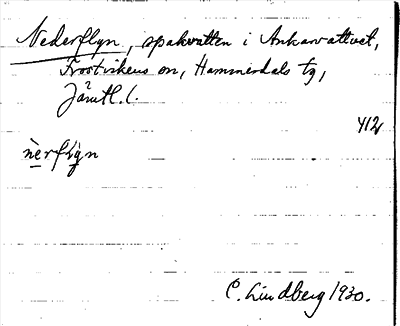 Nederflyn, spakvatten i Ankarvattnet,
Frostvikens sn, Hammerdals tg,
Jämtl. l.
412
nèrflyn
C. Lindberg 1930.